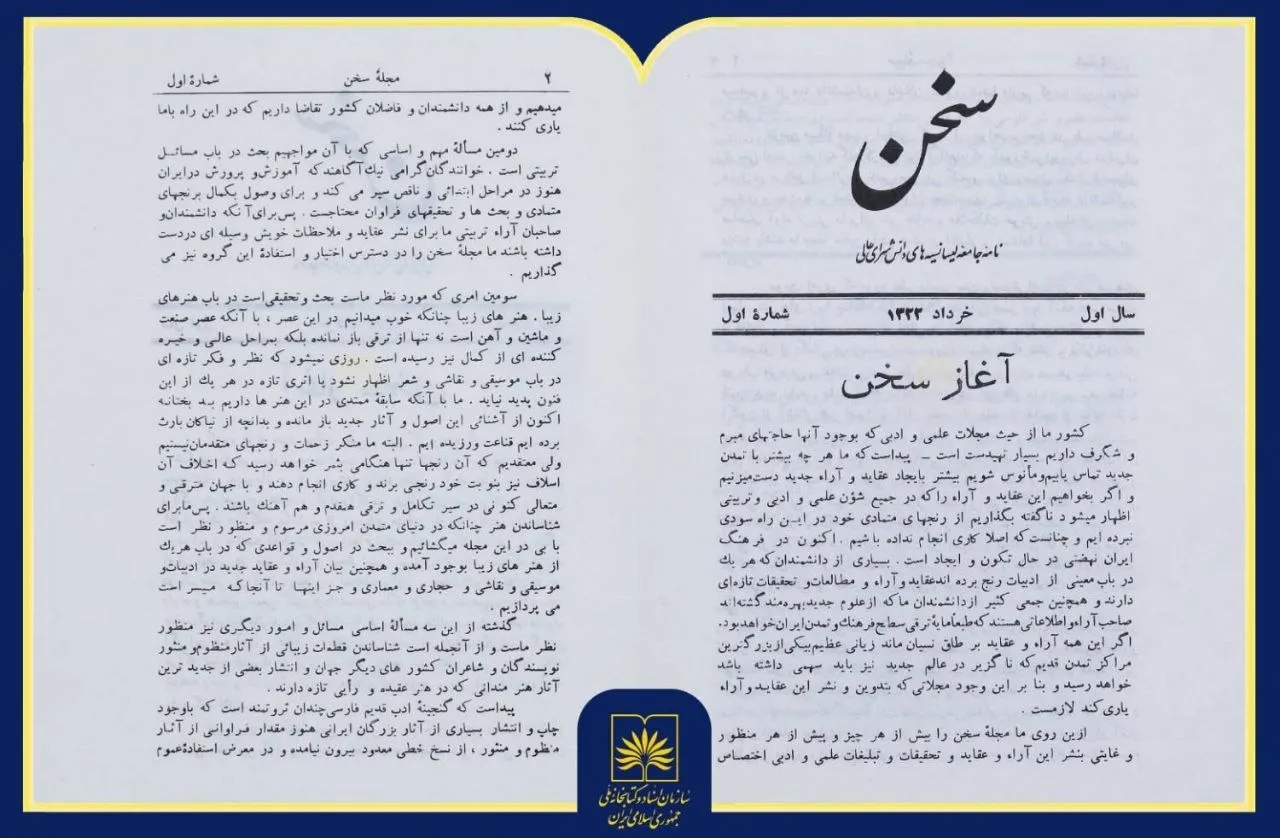 سخن
نامه جامعه لیسانسیه های دانشسرای عالی
سال اول خرداد ۱۳۲۲ شمارهٔ اول
آغاز سخن
کشور ما از حیث مجلات علمی و ادبی که بوجود آنها حاجتهای مبرم
و شگرف داریم بسیار تهیدست است ــ پیداست که ما هر چه بیشتر با تمدن
جدید تماس یابیم و مأنوس شویم بیشتر بایجاد عقاید و آراء جدید دست میزنیم
و اگر بخواهیم این عقاید و آراء را که در جمیع شؤن علمی و ادبی و تربیتی
اظهار میشود ناگفته بگذاریم از رنجهای متمادی خود در این راه سودی
نبرده ایم و چنانست که اصلا کاری انجام نداده باشیم . اکنون در فرهنگ
ایران نهضتی در حال تکون و ایجاد است . بسیاری از دانشمندان که هر یك
در باب معینی از ادبیات رنج برده اند عقاید و آراء و مطالعات و تحقیقات تازه‌ای
دارند و همچنین جمعی کثیر از دانشمندان ما که از علوم جدید بهره مند گشته‌اند
صاحب آراء و اطلاعاتی هستند که طبعاً مایهٔ ترقی سطح فرهنك و تمدن ایران خواهد بود.
اگر این همه آراء و عقاید بر طاق نسیان ماند زیانی عظیم بیکی از بزرگترین
مراکز تمدن قدیم که ناگزیر در عالم جدید نیز باید سهمی داشته باشد
خواهد رسید و بنا بر این وجود مجلاتی که بتدوین و نشر این عقاید و آراء
یاری کند لازمست .
ازین روی ما مجلهٔ سخن را بیش از هر چیز و پیش از هر منظور
و غایتی بنشر این آراء و عقاید و تحقیقات و تبلیغات علمی و ادبی اختصاص
۲ مجلهٔ سخن شمارهٔ اول
میدهیم و از همه دانشمندان و فاضلان کشور تقاضا داریم که در این راه باما
یاری کنند .
دومین مسألهٔ مهم و اساسی که با آن مواجهیم بحث در باب مسائل
تربیتی است . خوانندگان گرامی نیك آگاهند که آموزش و پرورش در ایران
هنوز در مراحل ابتدائی و ناقص سیر می کند و برای وصول بکمال برنجهای
متمادی و بحث ها و تحقیقهای فراوان محتاجست . پس برای آنکه دانشمندان و
صاحبان آراء تربیتی ما برای نشر عقاید و ملاحظات خویش وسیله ای دردست
داشته باشند ما مجلهٔ سخن را در دسترس اختیار و استفادهٔ این گروه نیز می
گذاریم .
سومین امری که مورد نظر ماست بحث و تحقیقی است در باب هنرهای
زیبا . هنر های زیبا چنانکه خوب میدانیم در این عصر ، با آنکه عصر صنعت
و ماشین و آهن است نه تنها از ترقی باز نمانده بلکه بمراحل عالی و خیره
کننده ای از کمال نیز رسیده است . روزی نمیشود که نظر و فکر تازه ای
در باب موسیقی و نقاشی و شعر اظهار نشود یا اثری تازه در هر یك از این
فنون پدید نیاید . ما با آنکه سابقهٔ ممتدی در این هنر ها داریم بدبختانه
اکنون از آشنائی این اصول و آثار جدید باز مانده و بدانچه از نیاکان بارث
برده ایم قناعت ورزیده ایم . البته ما منکر زحمات و رنجهای متقدمان نیستیم
ولی معتقدیم که آن رنجها تنها هنگامی بثمر خواهد رسید که اخلاف آن
اسلاف نیز بنوبت خود رنجی برند و کاری انجام دهند و با جهان مترقی و
متعالی کنونی در سیر تکامل و ترقی همقدم و هم آهنك باشند . پس مابرای
شناساندن هنر چنانکه در دنیای متمدن امروزی مرسوم و منظور نظر است
با بی در این مجله میگشائیم و ببحث در اصول و قواعدی که در باب هریك
از هنر های زیبا بوجود آمده و همچنین بیان آراء و عقاید جدید در ادبیات و
موسیقی و نقاشی و حجاری و معماری و جز اینها تا آنجا که میسر است
می پردازیم .
گذشته از این سه مسألهٔ اساسی مسائل و امور دیگری نیز منظور
نظر ماست و از آنجمله است شناساندن قطعات زیبائی از آثار منظوم و منثور
نویسندگان و شاعران کشور های دیگر جهان و انتشار بعضی از جدید ترین
آثار هنر مندانی که در هنر عقیده و رأیی تازه دارند .
پیداست که گنجینهٔ ادب قدیم فارسی چندان ثروتمند است که باوجود
چاپ و انتشار بسیاری از آثار بزرگان ایرانی هنوز مقدار فراوانی از آثار
منظوم و منثور ، از نسخ خطی معدود بیرون نیامده و در معرض استفادهٔ عموم
سازمان اسناد و کتابخانه ملی
جمهوری اسلامی ایران